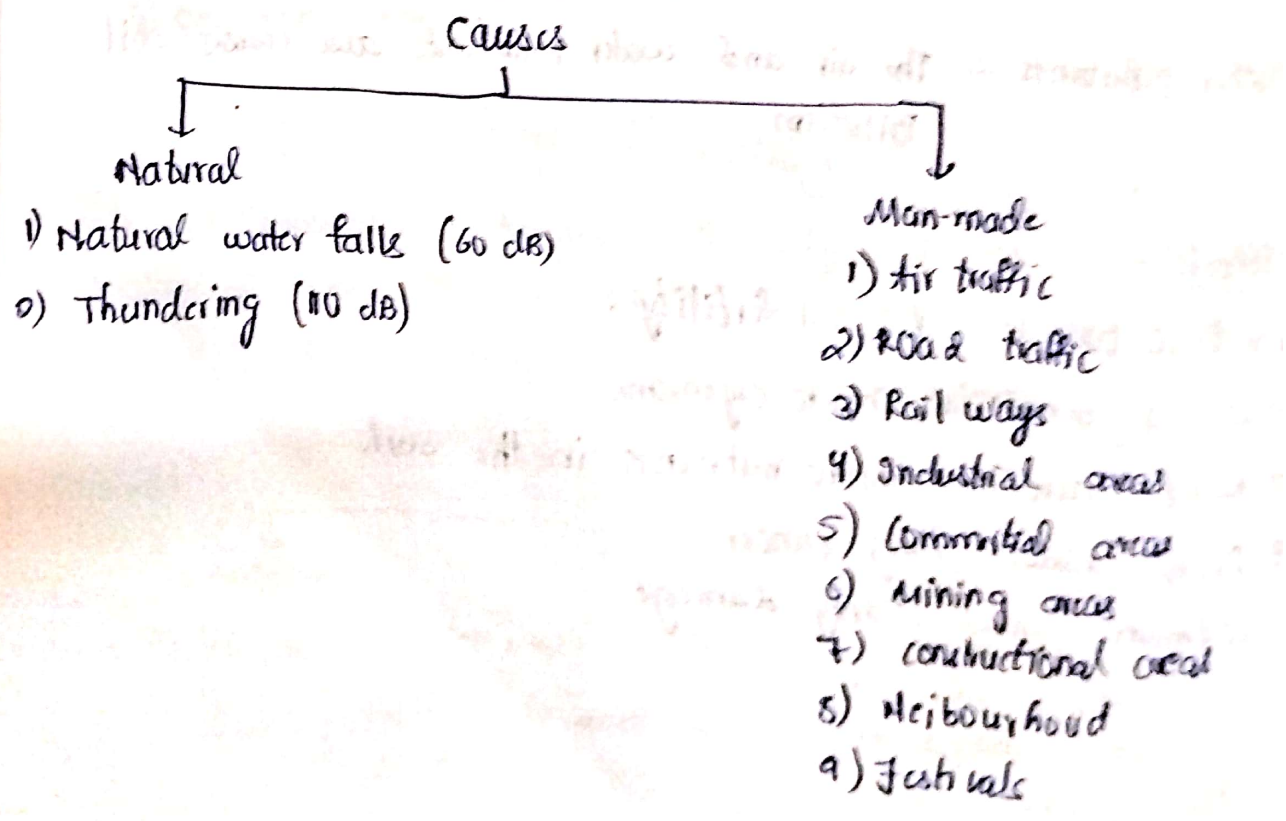 Causes
Natural
1) Natural water falls (60 dB)
2) Thundering (110 dB)
Man-made
1) Air traffic
2) Road traffic
3) Rail ways
4) Industrial areas
5) Commertial areas
6) Mining areas
7) constructional areas
8) Neibourhood
9) Festivals